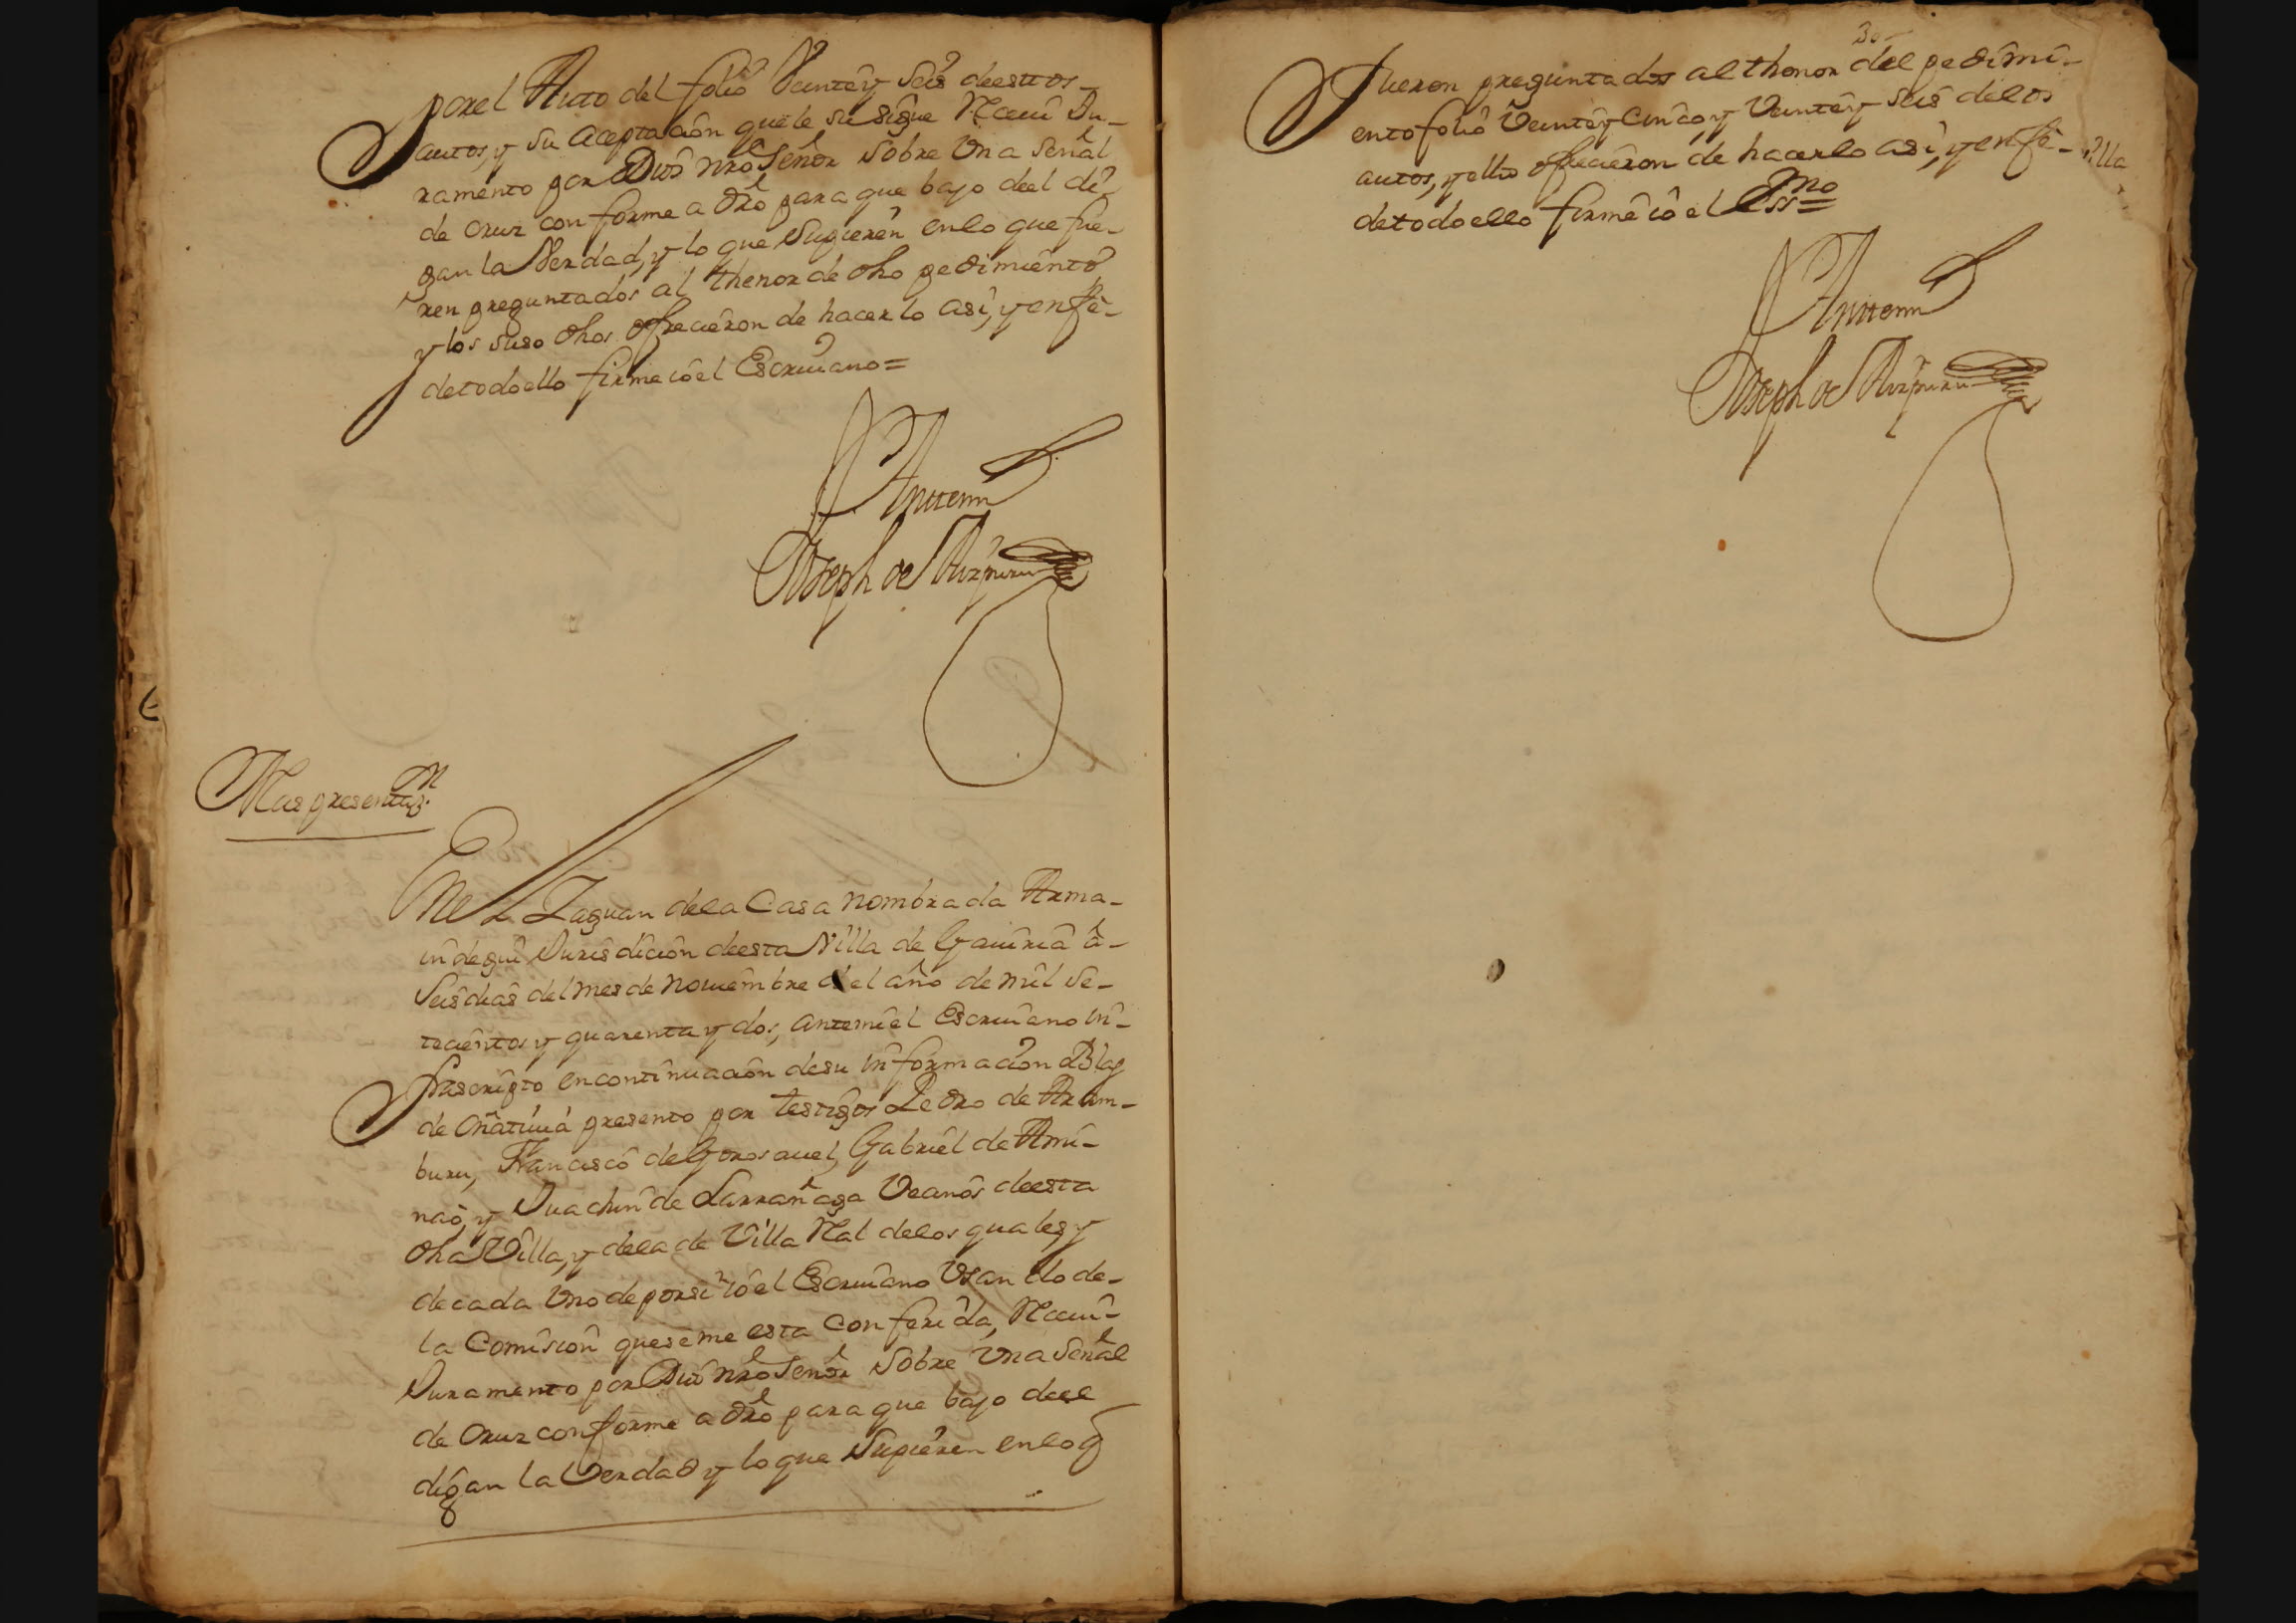 por el Auto del folio Veinte y Seis de esttos
autos, y su aceptacion que le su sigue Reciui Ju-
ramento por Dios nrô Señor sobre Una Señal
de Cruz conforme a drô para que bajo de el di-
gan la Verdad, y lo que Supieren en lo que fue-
ren preguntados al thenor de dho pedimiento
y los suso dhos ofrecieron de hacerlo asi, y en fe-
de todo ello firme io el Escriuano =
Anttemi
Joseph de Aizpuru
Mas presentaz.on
En el Zaguan de la Casa nombrada Arma-
indegui Jurisdicion de esta Villa de Gauiria â-
Seis dias del mes de Nouiembre del año de mil Se-
tecientos y quarenta y dos, ante mi el Escriuano in-
frascripto en continuacion de su informacion Blas
de Oñatiuia presento por testigos Pedro de Aram-
buru, Francisco de Gorosauel, Gabriel de Ami-
nao, y Juachin de Larrañaga Vecinos de esta
dha Villa, y de la de Villa Real de los quales, y
de cada Uno de por si io el Escriuano Usando de-
la Comision que se me esta Conferida, Reciui-
Juramento por Dios nrô Señor sobre Una Señal
de Cruz conforme a drô para que bajo de el
digan la Verdad y lo que Supieren en lo q
30
fueron preguntados al thenor del pedimi-
ento folio Veinte y Cinco, y Veinte y Seis de los
autos, y ellos ofrecieron de hacerlo asi, y en fe-
de todo ello firme io el Essno =
Anttemi
Joseph de Aizpuru
illa